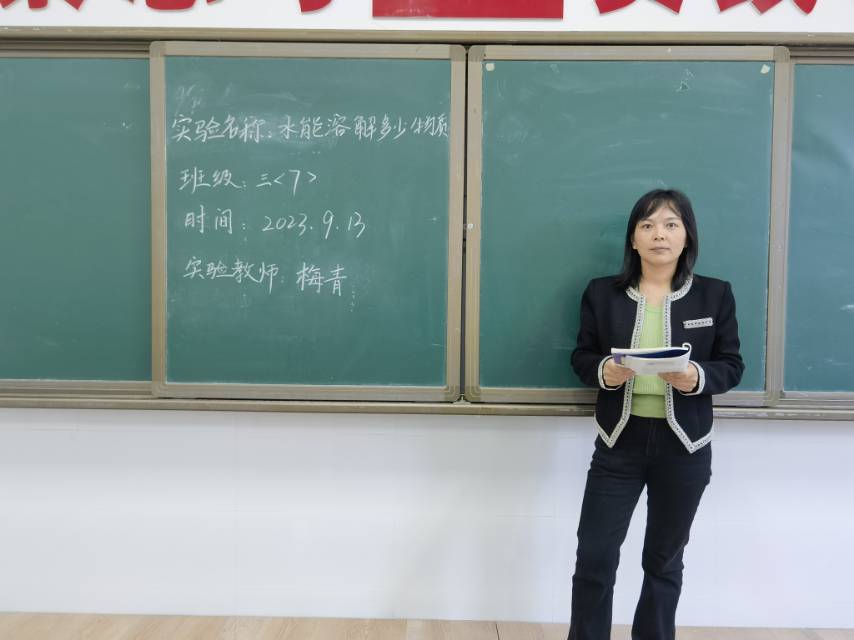 实验名称:水能溶解多少物质
班级:三<7>
时间:2023.9.13
实验教师:梅青